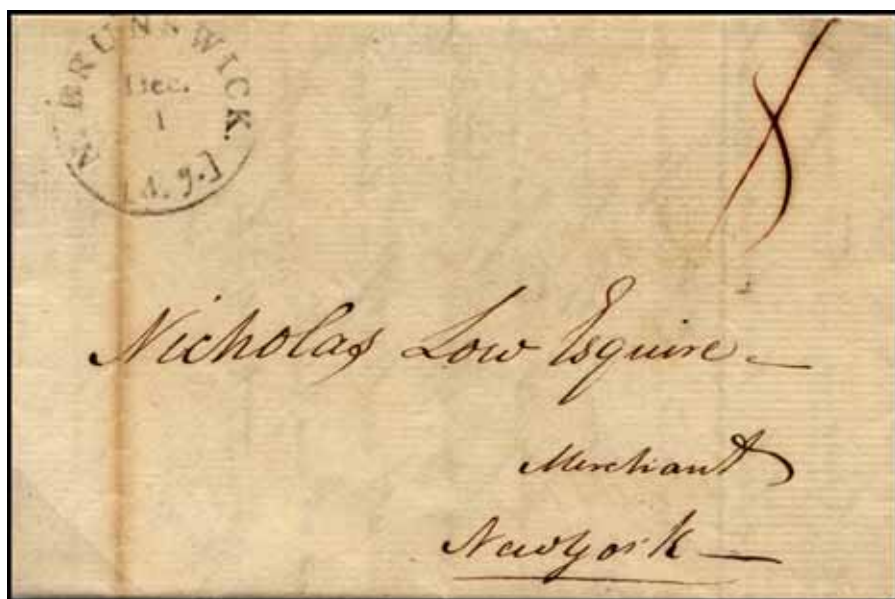 N. BRUNSWICK. [N.J.]
Dec.
1
8
Nicholas Low Esquire –
Merchant
New York –